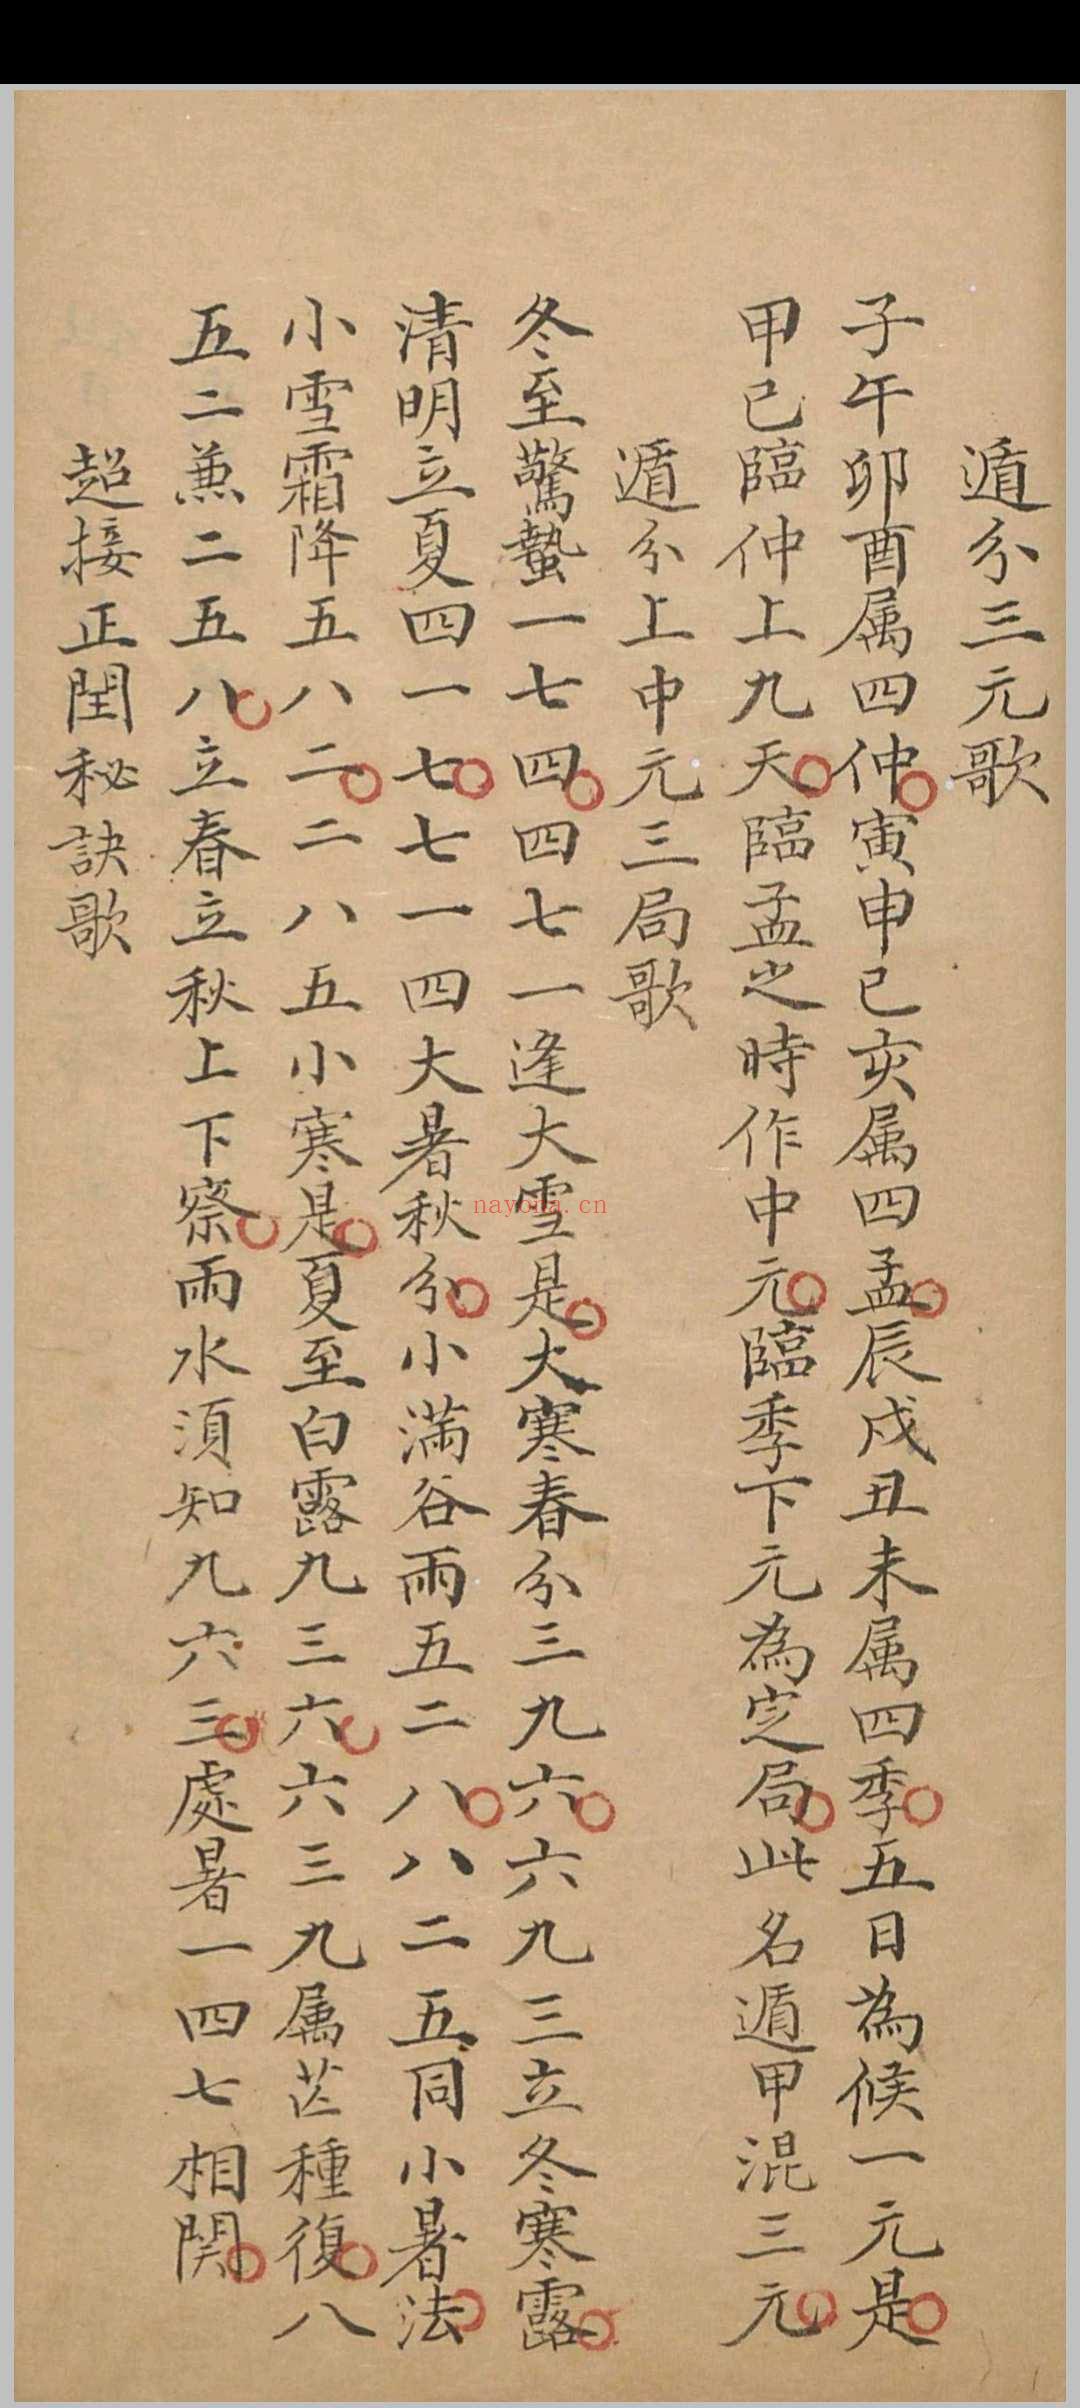 遁分三元歌
子午卯酉属四仲寅申巳亥属四孟辰戌丑未属四季五日為候一元是
甲己臨仲上九天臨孟之時作中元臨季下元為定局此名遁甲混三元
遁分上中元三局歌
冬至驚蟄一七四四七一逢大雪是大寒春分三九六六九三立冬寒露
清明立夏四一七七一四大暑秋分小滿谷雨五二八八二五同小暑法
小雪霜降五八二二八五小寒是夏至白露九三六六三九属芒種復八
五二兼二五八立春立秋上下察雨水須知九六三處暑一四七相関
超接正閏秘訣歌
nayona.cn